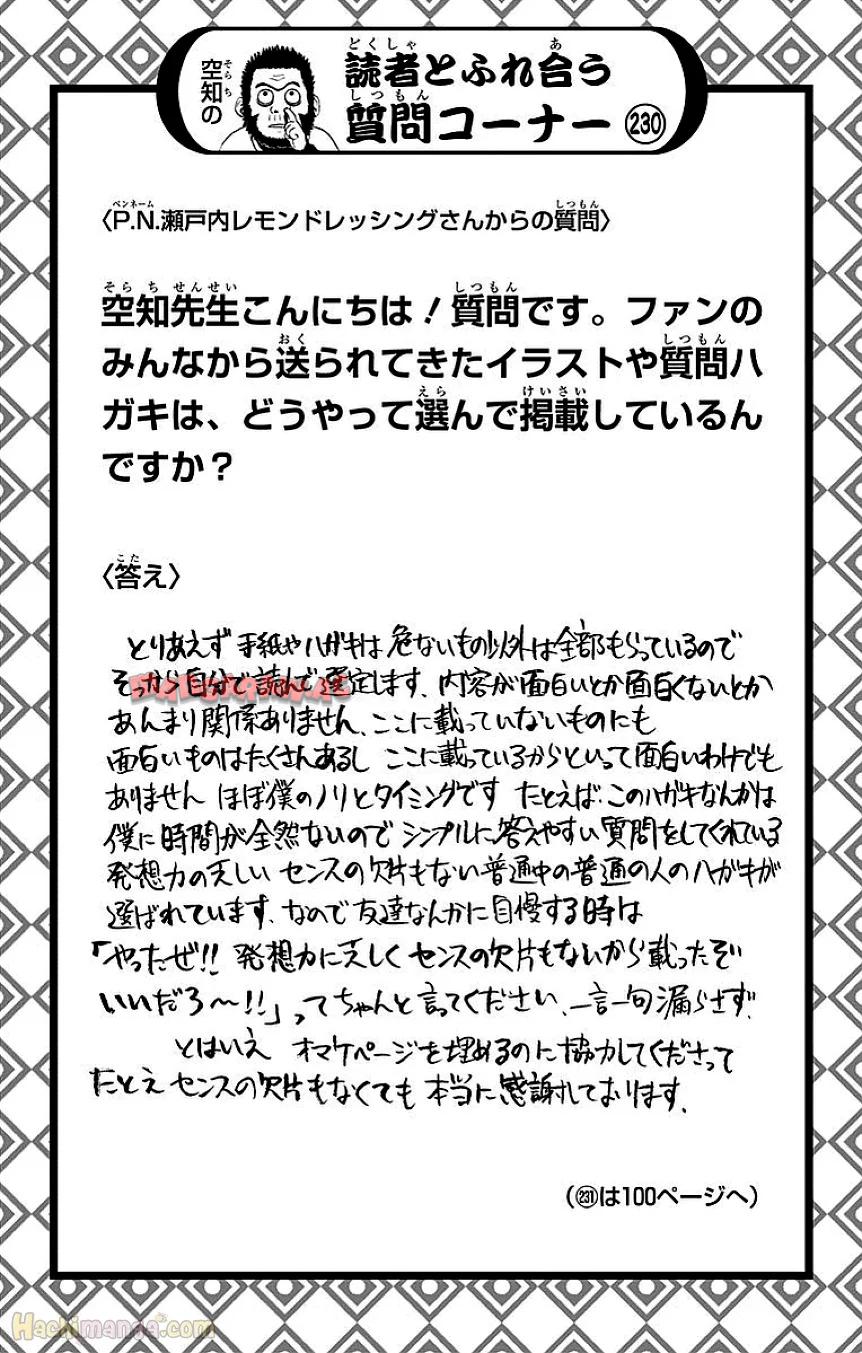 空知の
読者とふれ合う
質問コーナー 230
〈P.N.瀬戸内レモンドレッシングさんからの質問〉
空知先生こんにちは!質問です。ファンの
みんなから送られてきたイラストや質問ハ
ガキは、どうやって選んで掲載しているん
ですか?
〈答え〉
とりあえず 手紙やハガキは 危ないもの以外は全部もらっているので
そっから自分で読んで選定します、内容が面白いとか面白くないとか
あんまり関係ありません、ここに載っていないものにも
面白いものはたくさんあるし ここに載っているからといって面白いわけでも
ありません ほぼ僕のノリとタイミングです たとえば、このハガキなんかは
僕に時間が全然ないので シンプルに答えやすい質問をしてくれている
発想力の乏しい センスの欠片もない普通中の普通の人のハガキが
選ばれています、なので友達なんかに自慢する時は
「やったぜ!! 発想力に乏しく センスの欠片もないから載ったぞ
いいだろ〜!!」ってちゃんと言ってください、一言一句漏らさず、
とはいえ オマケページを埋めるのに協力してくださって
たとえ センスの欠片もなくても 本当に感謝しております、
(231は100ページへ)
Hachimanga.com